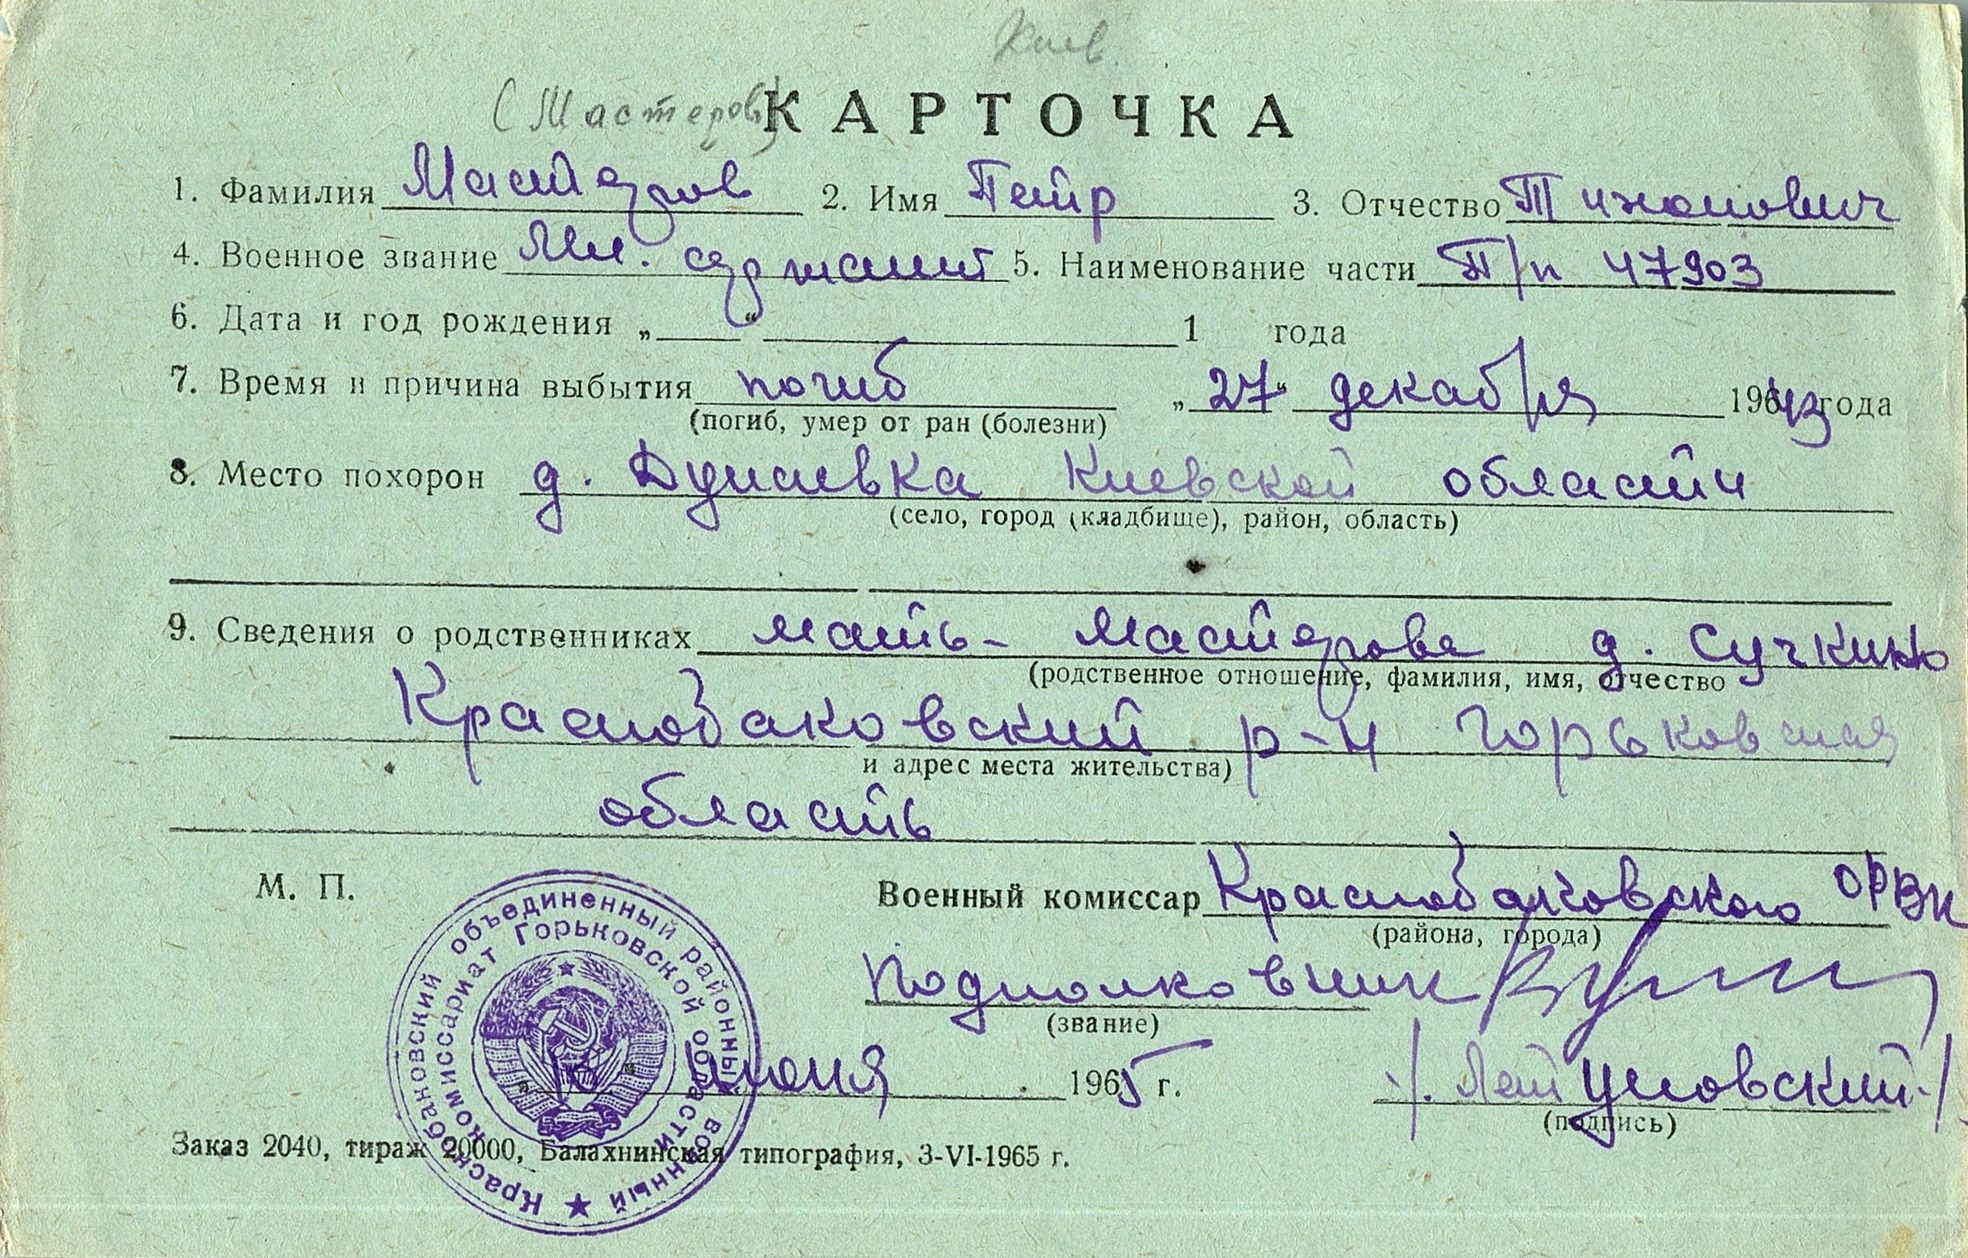 Киев.
(Мастеров)
КАРТОЧКА
1. Фамилия Мастеров 2. Имя Петр 3. Отчество Тихонович
4. Военное звание Мл. сержант 5. Наименование части П/п 47903
6. Дата и год рождения „ “ 1 года
7. Время и причина выбытия погиб „27“ декабря 1943 года
(погиб, умер от ран (болезни)
8. Место похорон д. Дунаевка Киевской области
(село, город (кладбище), район, область)
9. Сведения о родственниках мать - Мастерова д. Сучкино
(родственное отношение, фамилия, имя, отчество
Краснобаковский р-н Горьковская
и адрес места жительства)
область
М. П.
Военный комиссар Краснобаковского ОРВК
(района, города)
подполковник
(звание)
„ “ июня 1965 г.
(подпись)
Краснобаковский объединенный районный военный
комиссариат Горьковской области
Заказ 2040, тираж 20000, Балахнинская типография, 3-VI-1965 г.